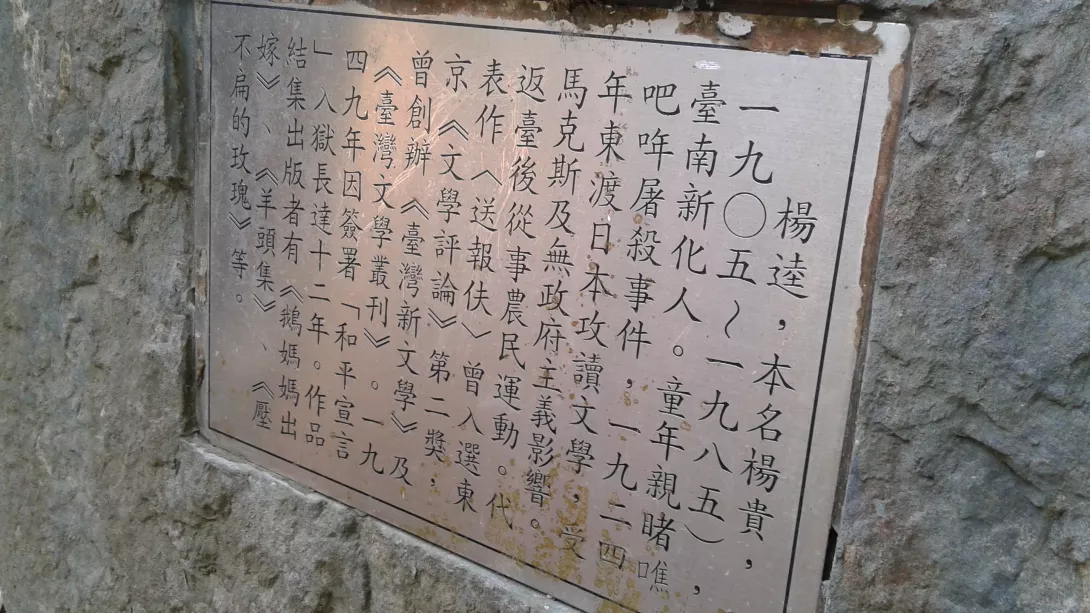 楊逵，本名楊貴，
一九〇五～一九八五），
臺南新化人。童年親睹噍
吧哖屠殺事件，一九二四
年東渡日本攻讀文學，受
馬克斯及無政府主義影響。
返臺後從事農民運動。代
表作〈送報伕〉曾入選東
京《文學評論》第二獎，
曾創辦《臺灣新文學》及
《臺灣文學叢刊》。一九
四九年因簽署「和平宣言
」入獄長達十二年。作品
結集出版者有《鵝媽媽出
嫁》、《羊頭集》、《壓
不扁的玫瑰》等。